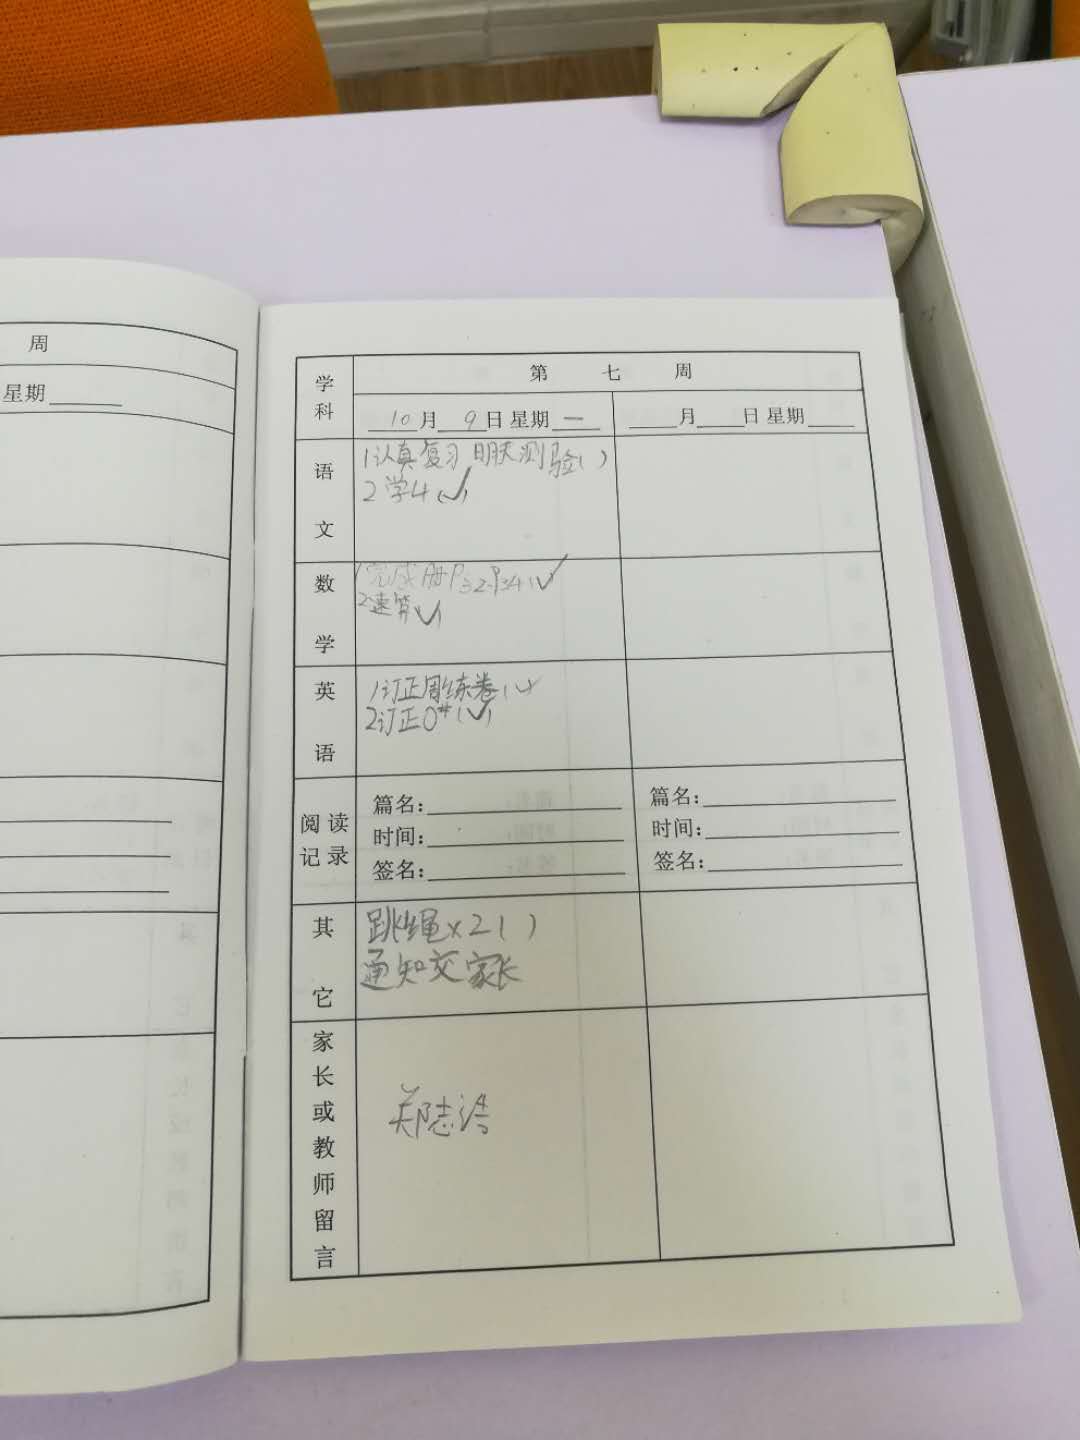 周
星期
学科
第 七 周
10月9日 星期一
月 日 星期
语文
1认真复习 明天测验( )
2学4(✓)
数学
1完成册P32-P34(✓)
2速算(✓)
英语
1订正周练卷(✓)
2订正0#(✓)
阅读记录
篇名:
时间:
签名:
篇名:
时间:
签名:
其它
跳绳x2( )
通知交家长
家长或教师留言
郑志浩